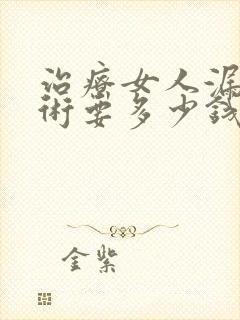 治療女人漏
術要多少錢
金紫